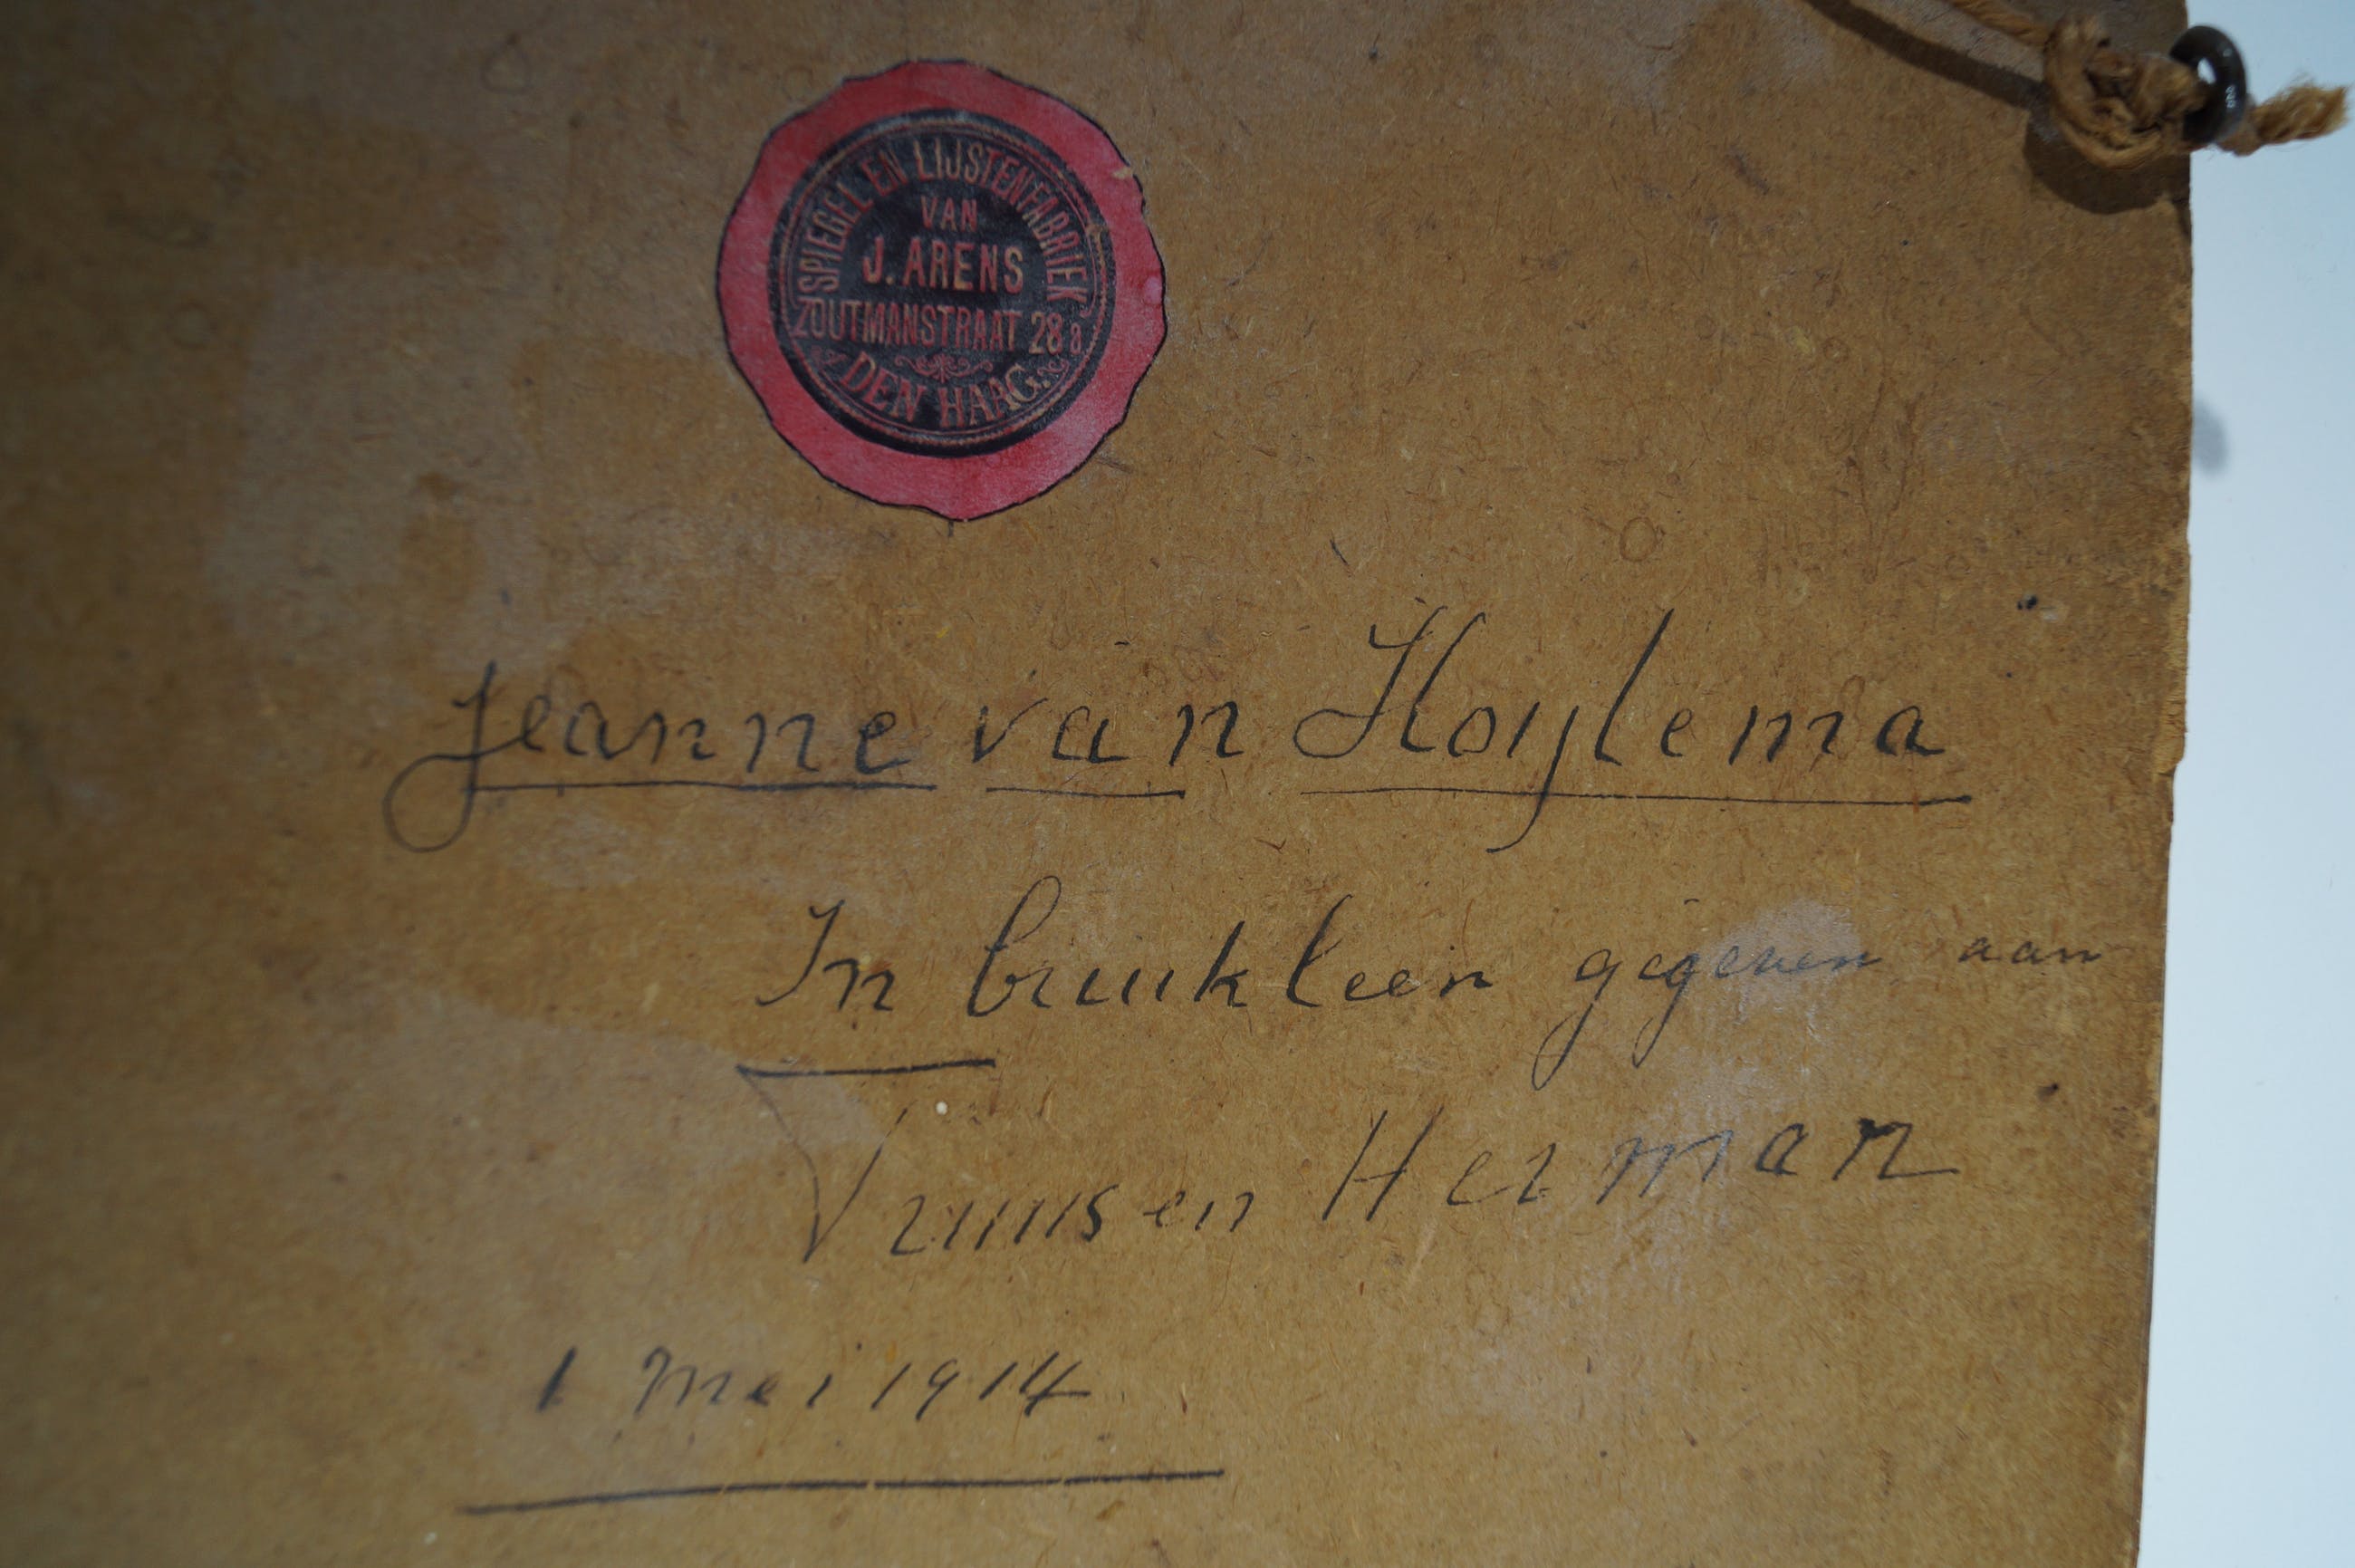 SPIEGEL EN LIJSTENFABRIEK
VAN
J. ARENS
ZOUTMANSTRAAT 28B
DEN HAAG.
Jeanne van Hoylema
In bruikleen gegeven aan
Truus en Herman
1 Mei 1914